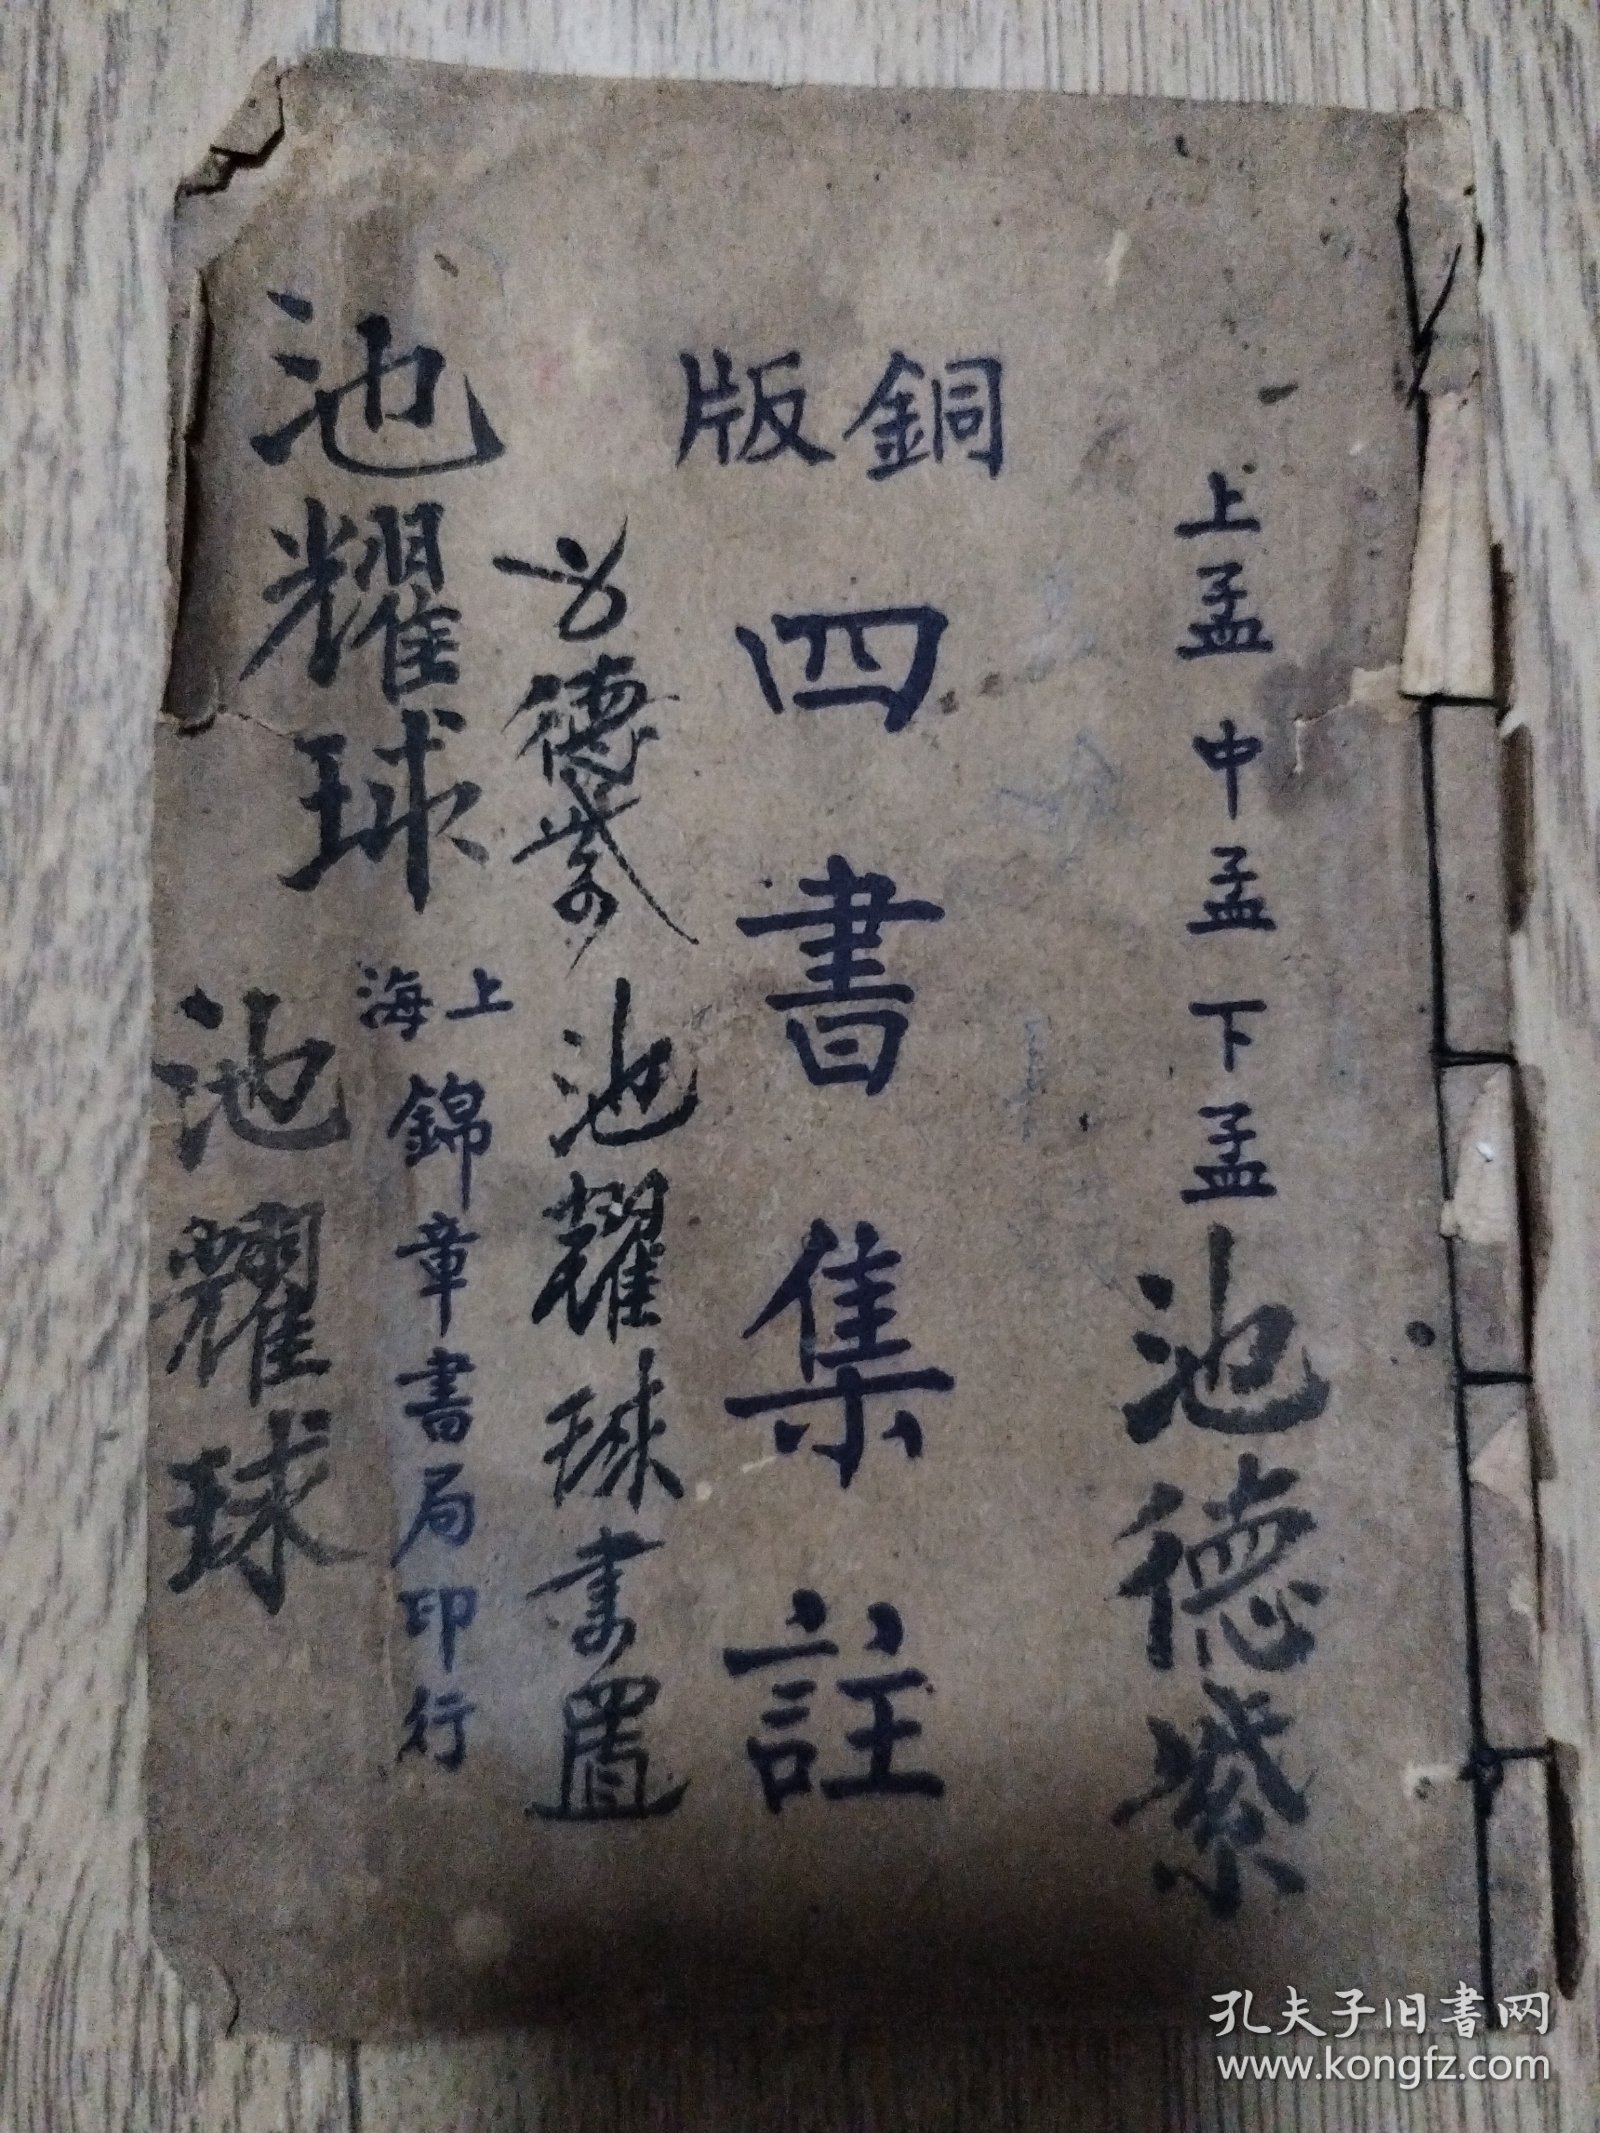 上孟 中孟 下孟
池德紫
銅版
四書集註
德紫
池耀球書置
上海
錦章書局印行
池耀球
池耀球
孔夫子旧书网
www.kongfz.com